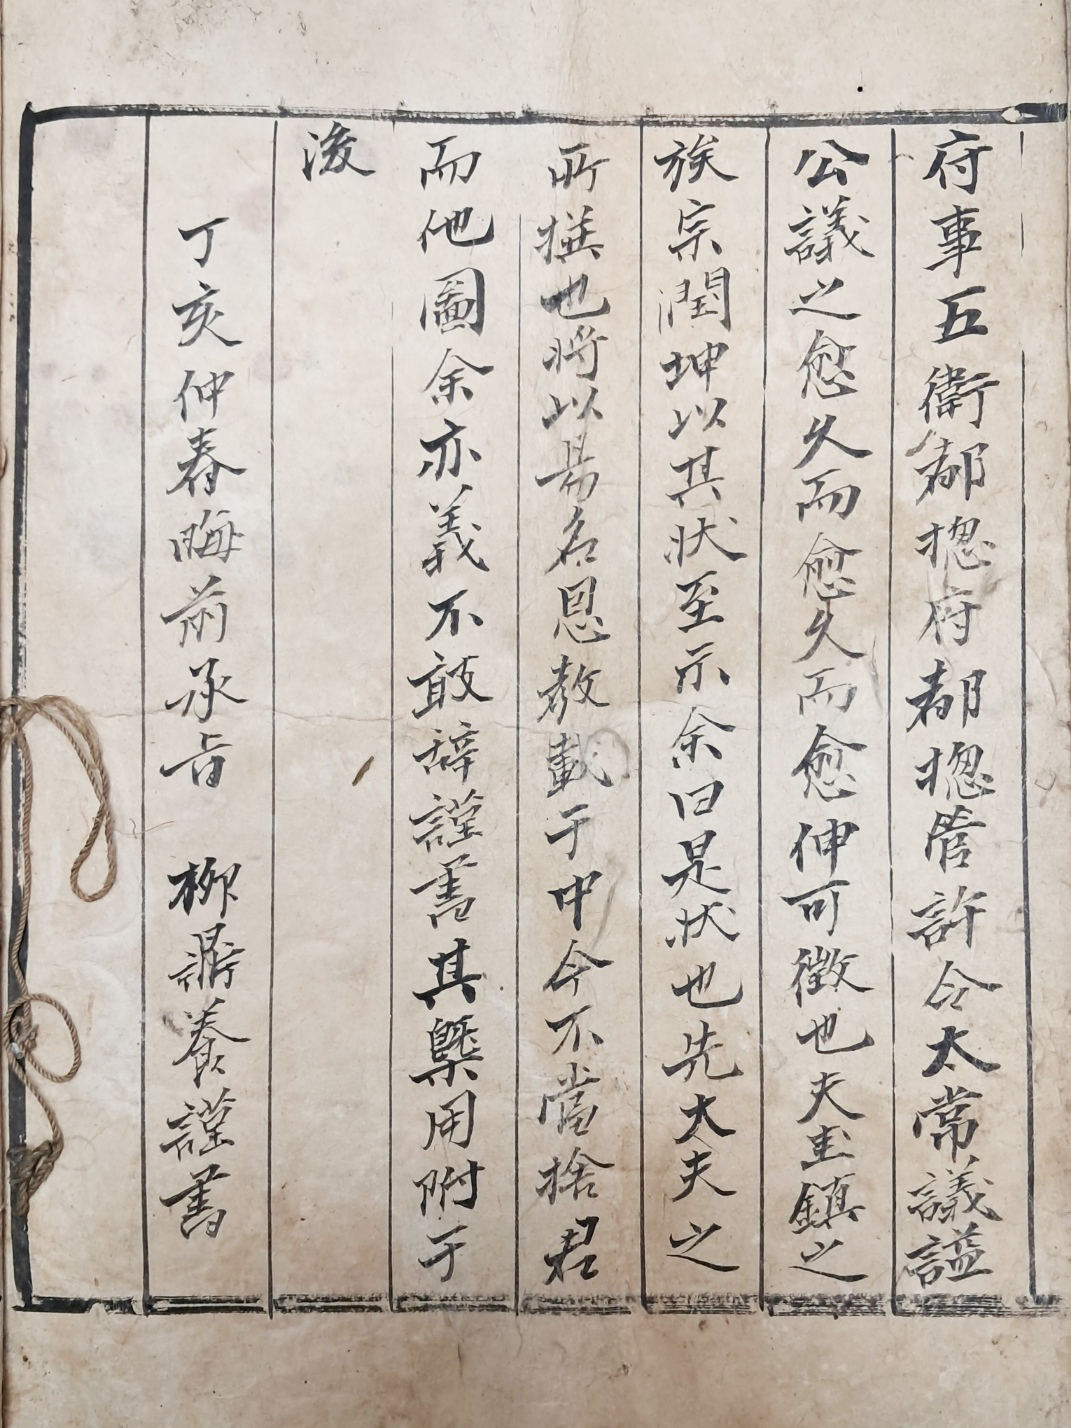 府事五衛都摠府都摠管許令太常議謚
公議之愈久而愈久而愈伸可徵也夫圭鎭之
族宗潤坤以其狀至示余曰是狀也先大夫之
所撰也將以易名恩教載于中今不當捨君
而他圖余亦義不敢辭謹書其槩用附于
後
丁亥仲春晦前承旨 柳謹養謹書